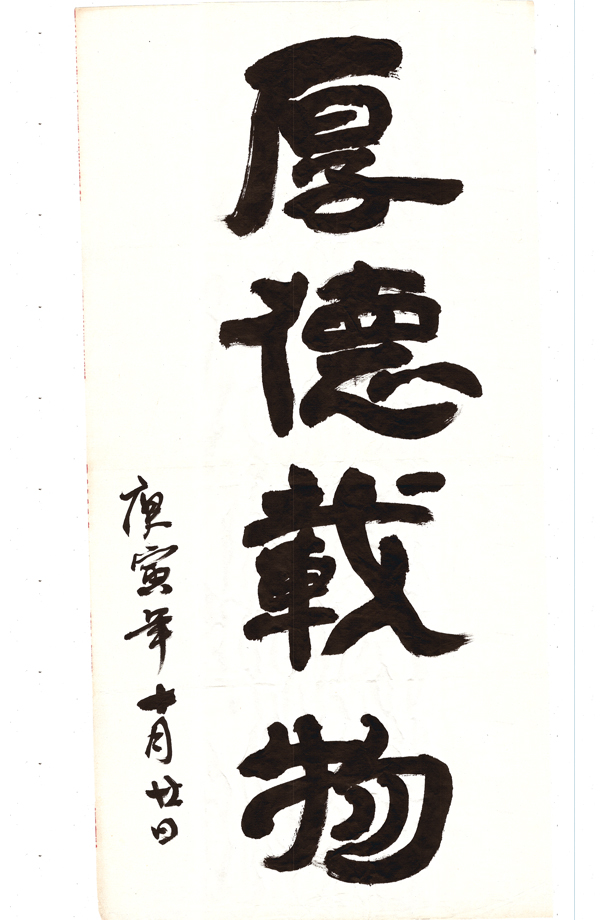 厚德載物
庚寅年十月廿日